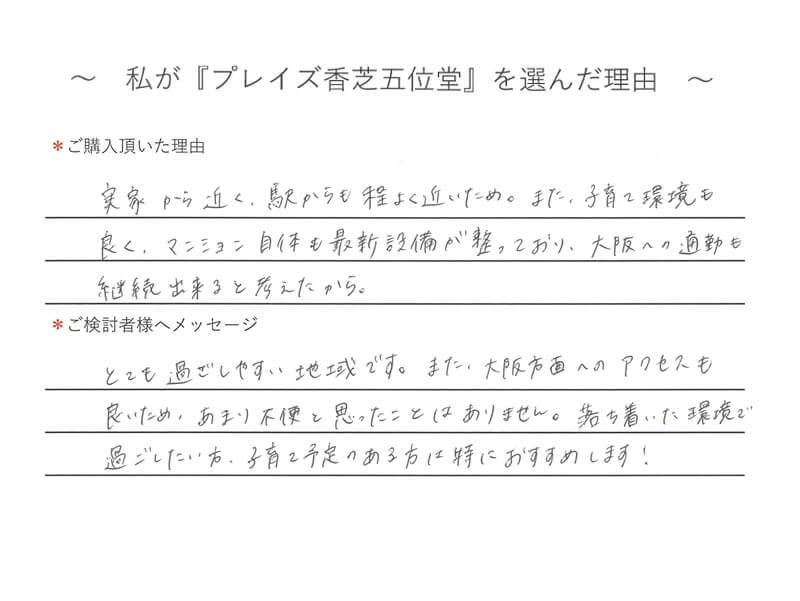 ～ 私が『プレイズ香芝五位堂』を選んだ理由 ～
＊ご購入頂いた理由
実家から近く、駅からも程よく近いため。また、子育て環境も
良く、マンション自体も最新設備が整っており、大阪への通勤も
継続出来ると考えたから。
＊ご検討者様へメッセージ
とても過ごしやすい地域です。また、大阪方面へのアクセスも
良いため、あまり不便と思ったことはありません。落ち着いた環境で
過ごしたい方、子育て予定のある方は特におすすめします！